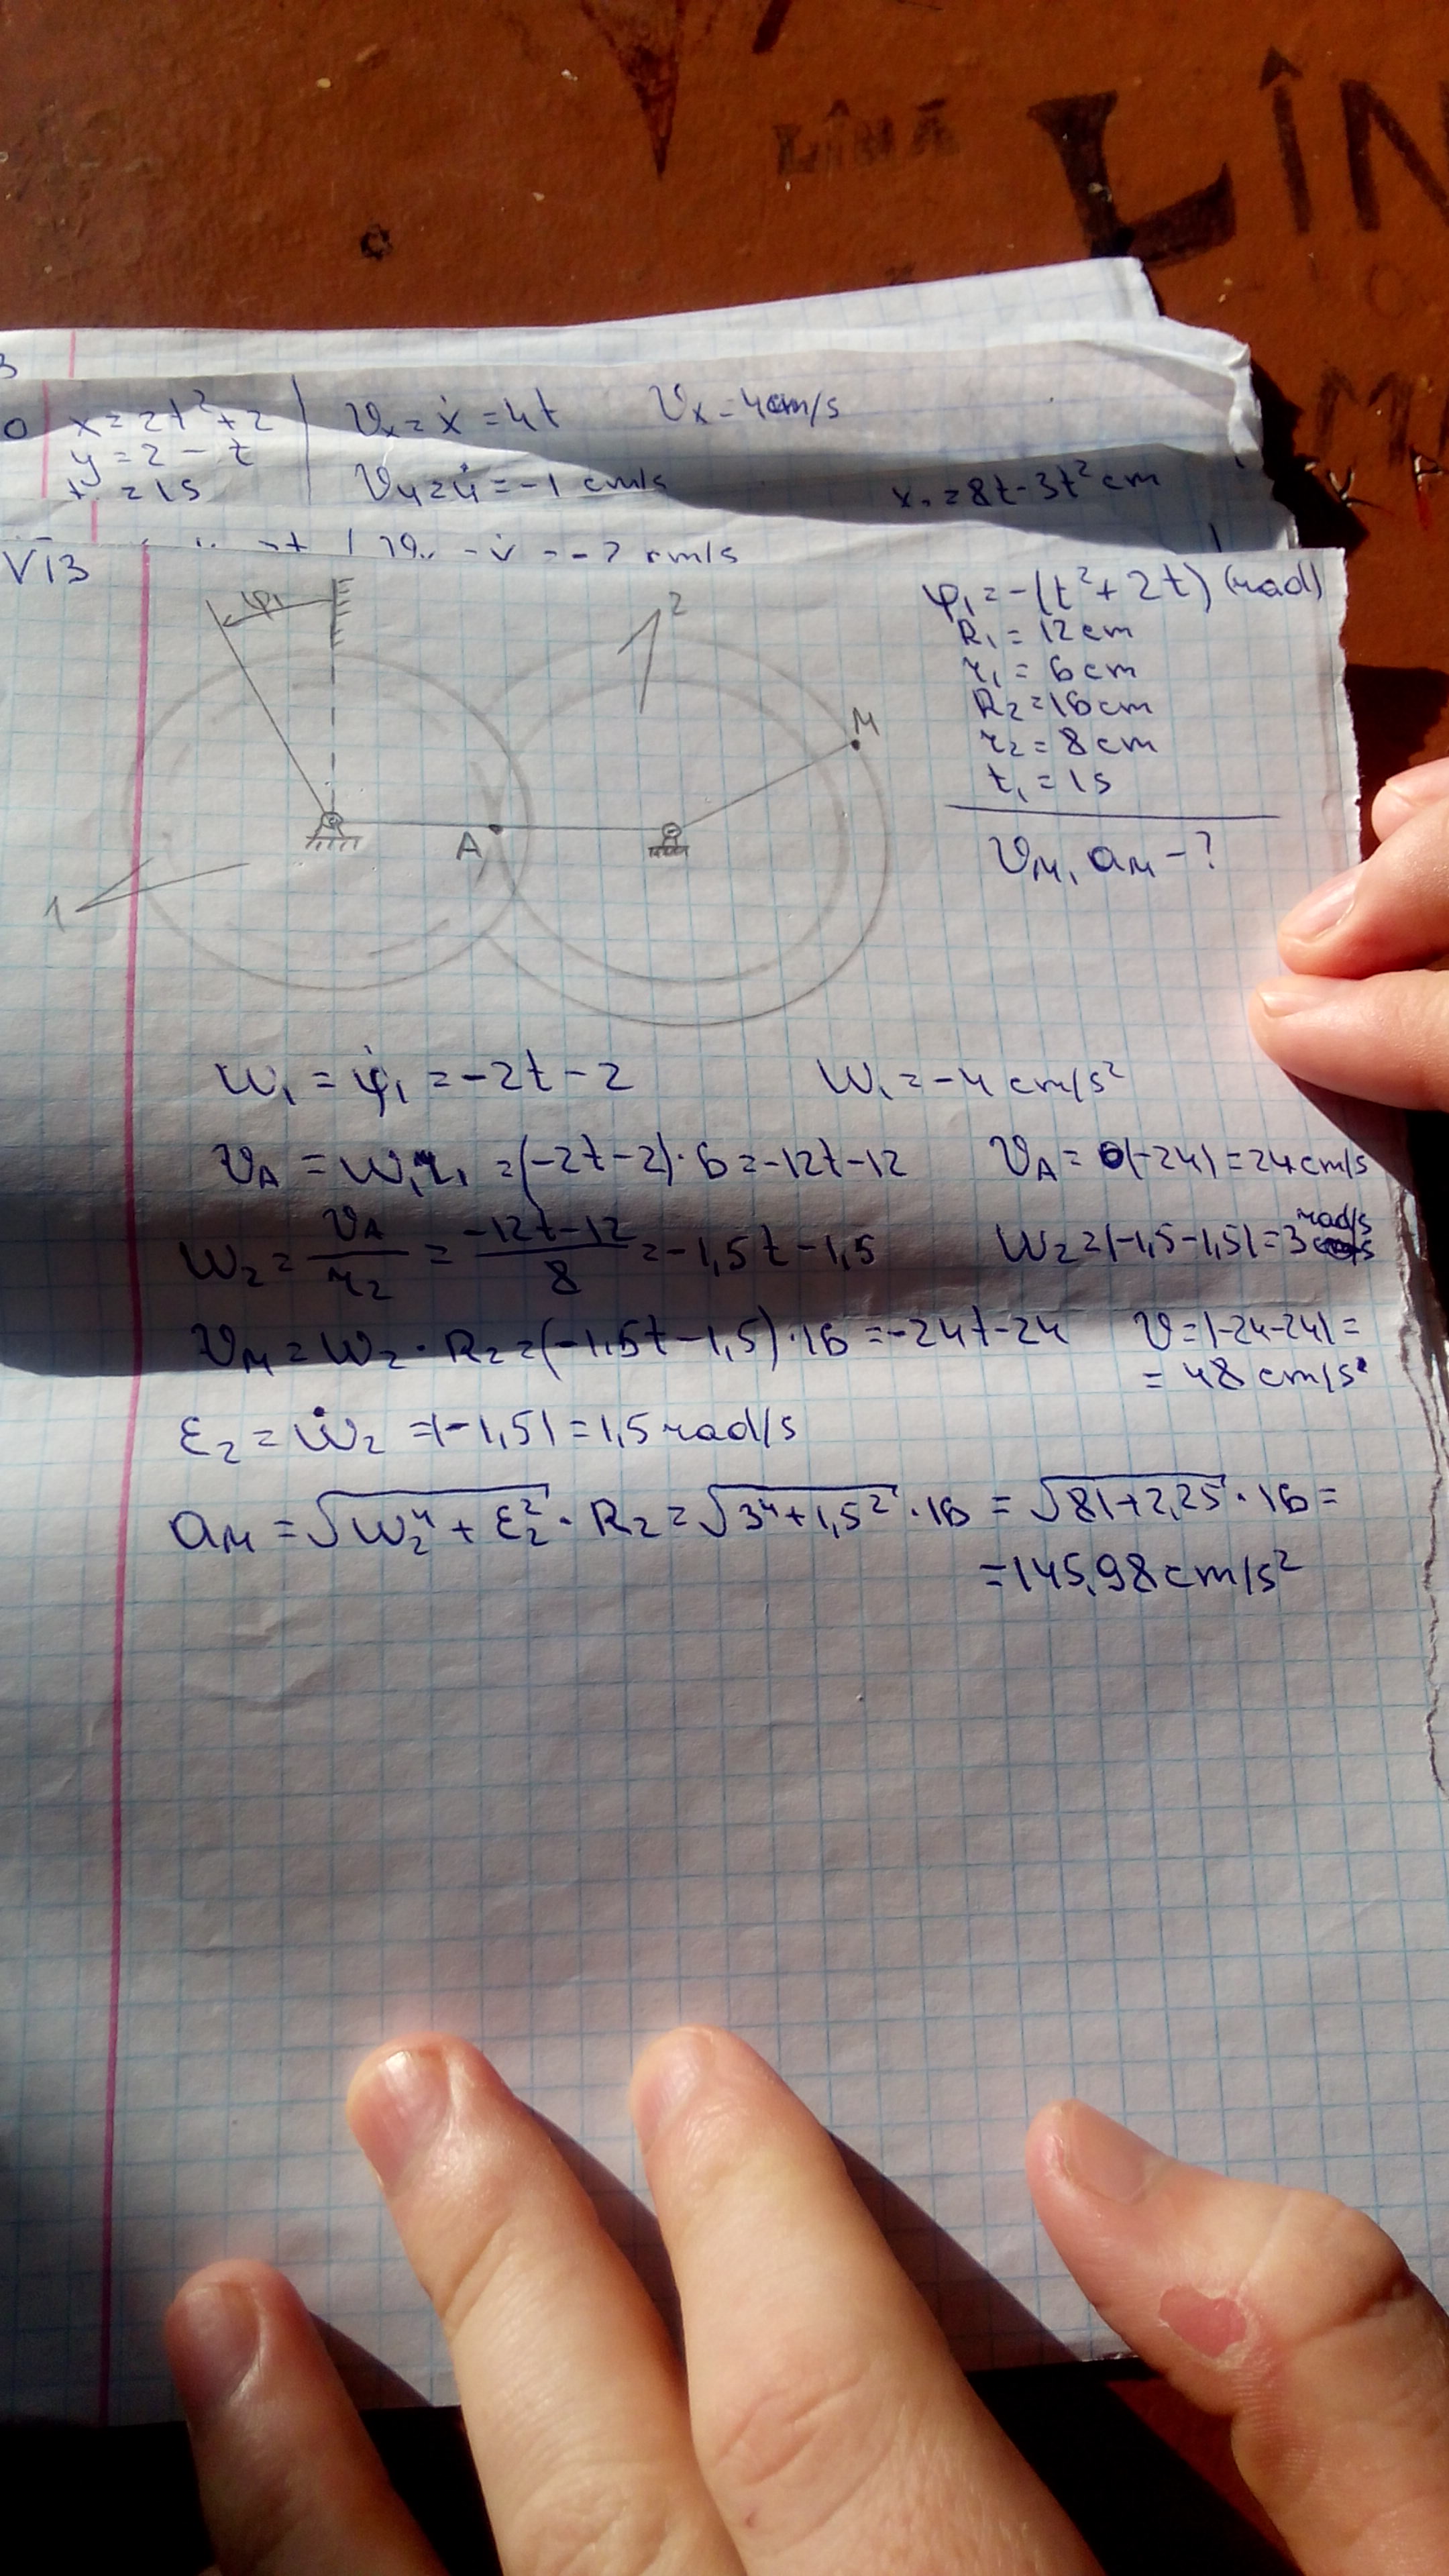 LÎNĂ
LÎN
x=2t²+2
y=2-t
t=1s
Vx=ẋ=4t
Vx=4cm/s
Vy=ẏ=-1 cm/s
=8t-3t²cm
V13
φ₁
2
M
A
1
φ₁=-(t²+2t) (rad)
R₁=12cm
r₁=6cm
R₂=16cm
r₂=8cm
t₁=1s
VM, aM-?
W₁=φ̇₁=-2t-2 W₁=-4 cm/s²
VA=W₁r₁=(-2t-2)·6=-12t-12 VA=|(-24)|=24cm/s
W₂=VA/r₂=(-12t-12)/8=-1,5t-1,5 W₂=|-1,5-1,5|=3 rad/s
VM=W₂·R₂=(-1,5t-1,5)·16=-24t-24 V=|-24-24|=
=48 cm/s
ε₂=ẇ₂=|-1,5|=1,5 rad/s
aM=√(W₂⁴+ε₂²)·R₂=√(3⁴+1,5²)·16=√(81+2,25)·16=
=145,98cm/s²